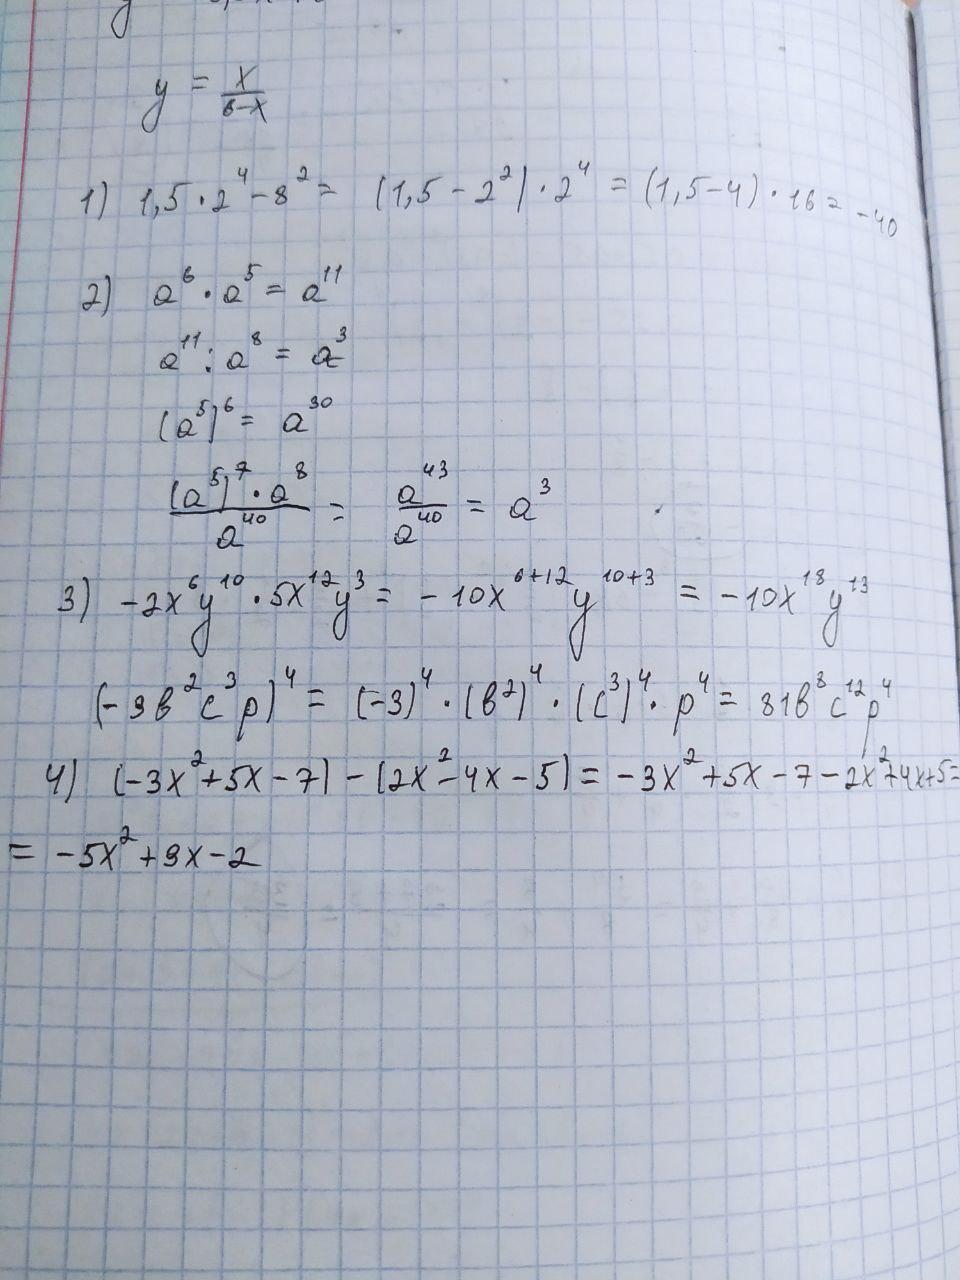 y = x/(6-x)
1) 1,5 · 2⁴ - 8² = (1,5 - 2²) · 2⁴ = (1,5 - 4) · 16 = -40
2) a⁶ · a⁵ = a¹¹
a¹¹ : a⁸ = a³
(a⁵)⁶ = a³⁰
((a⁵)⁷ · a⁸)/a⁴⁰ = a⁴³/a⁴⁰ = a³
3) -2x⁶y¹⁰ · 5x¹²y³ = -10x⁶⁺¹²y¹⁰⁺³ = -10x¹⁸y¹³
(-3в²c³p)⁴ = (-3)⁴ · (в²)⁴ · (c³)⁴ · p⁴ = 81в⁸c¹²p⁴
4) (-3x² + 5x - 7) - (2x² - 4x - 5) = -3x² + 5x - 7 - 2x² + 4x + 5 =
= -5x² + 9x - 2